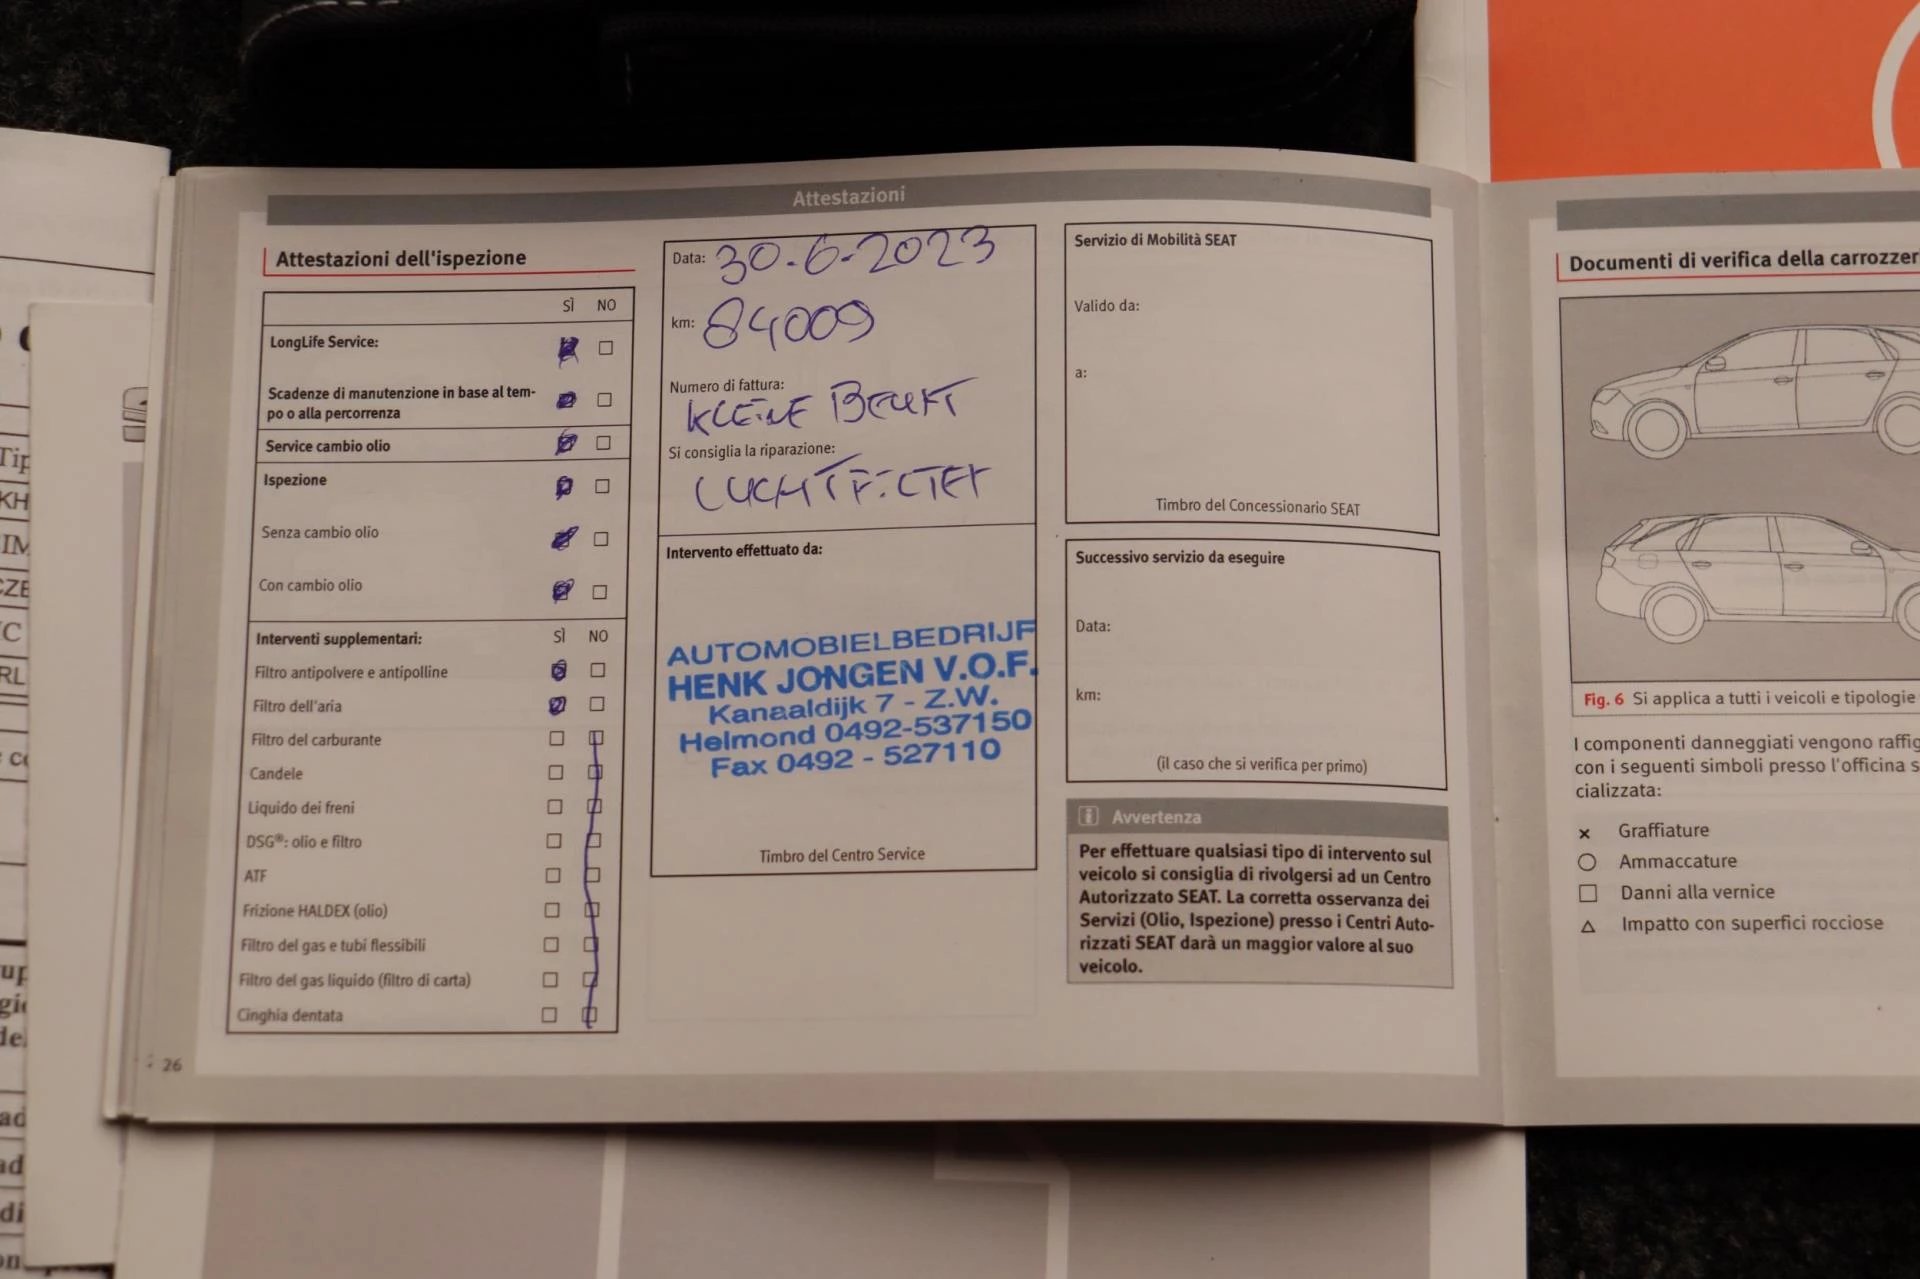 Attestazioni
Attestazioni dell'ispezione
SÌ NO
LongLife Service:
Scadenze di manutenzione in base al tem-
po o alla percorrenza
Service cambio olio
Ispezione
Senza cambio olio
Con cambio olio
Interventi supplementari: SÌ NO
Filtro antipolvere e antipolline
Filtro dell'aria
Filtro del carburante
Candele
Liquido dei freni
DSG®: olio e filtro
ATF
Frizione HALDEX (olio)
Filtro del gas e tubi flessibili
Filtro del gas liquido (filtro di carta)
Cinghia dentata
26
Data: 30-6-2023
km: 84009
Numero di fattura:
KLEINE BEURT
Si consiglia la riparazione:
LUCHTFILTER
Intervento effettuato da:
AUTOMOBIELBEDRIJF
HENK JONGEN V.O.F.
Kanaaldijk 7 - Z.W.
Helmond 0492-537150
Fax 0492 - 527110
Timbro del Centro Service
Servizio di Mobilità SEAT
Valido da:
a:
Timbro del Concessionario SEAT
Successivo servizio da eseguire
Data:
km:
(il caso che si verifica per primo)
Avvertenza
Per effettuare qualsiasi tipo di intervento sul
veicolo si consiglia di rivolgersi ad un Centro
Autorizzato SEAT. La corretta osservanza dei
Servizi (Olio, Ispezione) presso i Centri Auto-
rizzati SEAT darà un maggior valore al suo
veicolo.
Documenti di verifica della carrozzer
Fig. 6 Si applica a tutti i veicoli e tipologie
I componenti danneggiati vengono raffig
con i seguenti simboli presso l'officina s
cializzata:
Graffiature
Ammaccature
Danni alla vernice
Impatto con superfici rocciose